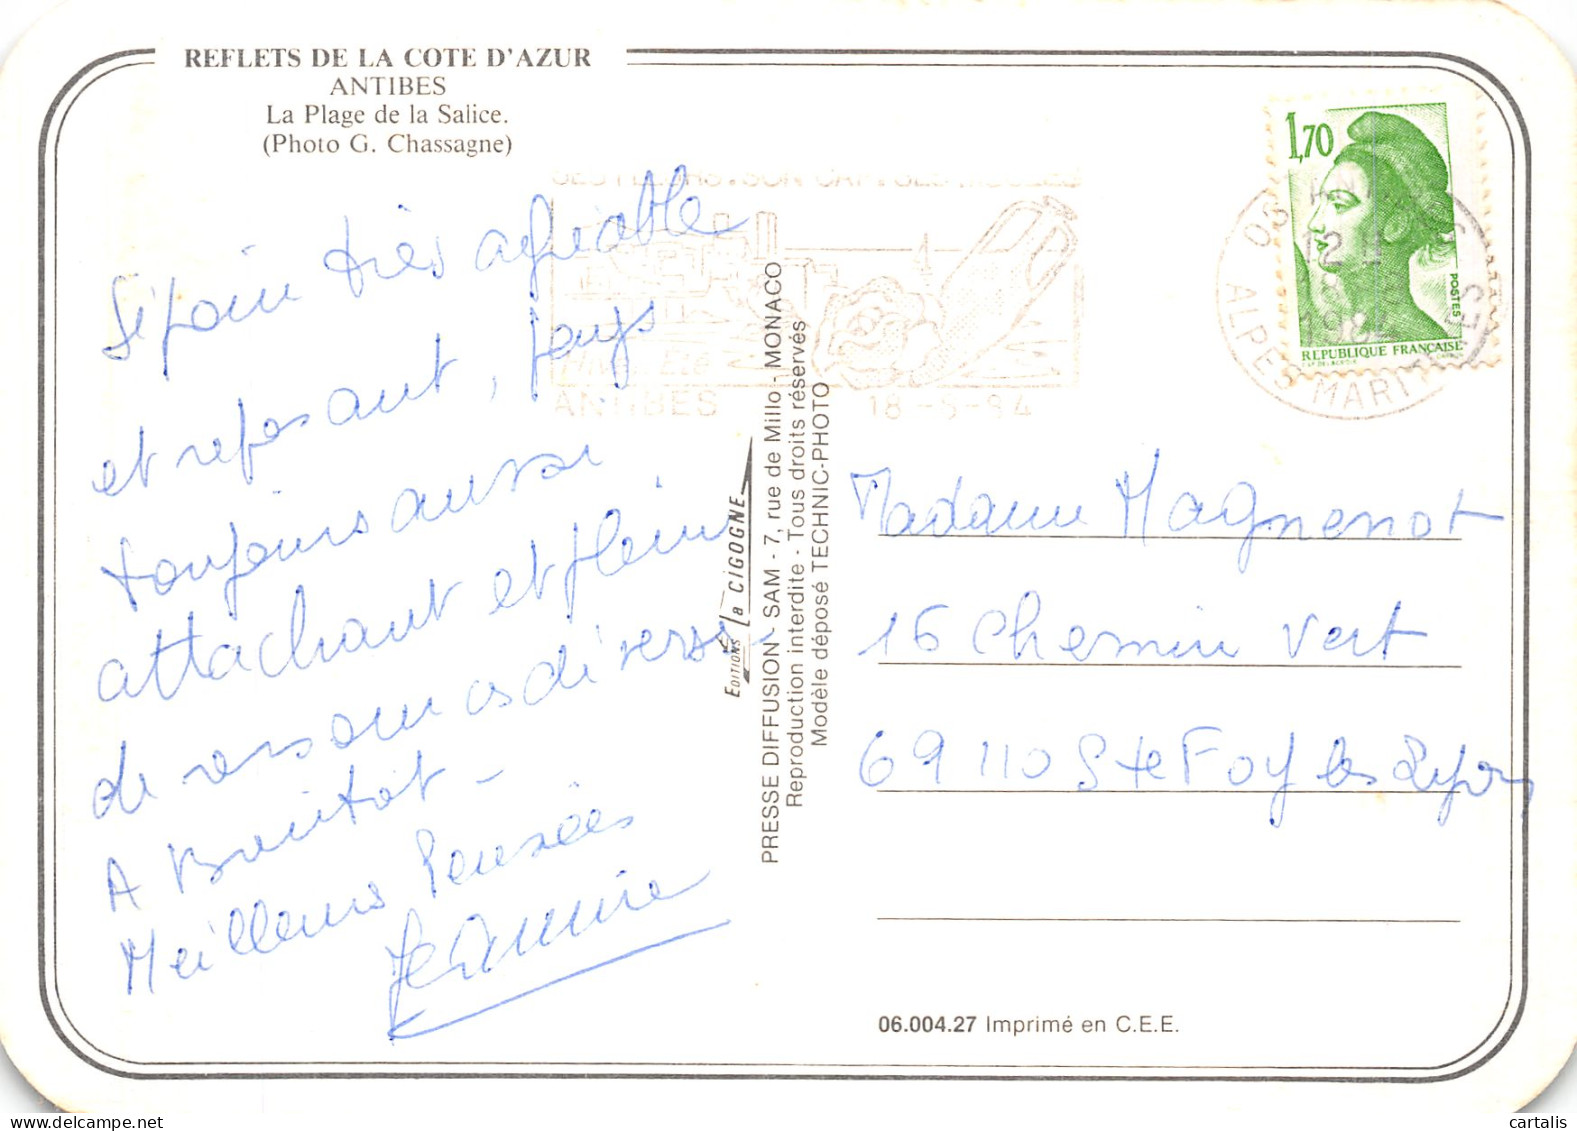 REFLETS DE LA COTE D'AZUR
ANTIBES
La Plage de la Salice.
(Photo G. Chassagne)
Séjour très agréable
et reposant, pays
toujours aussi
attachant et plein
de ressources diverses
A Bientôt -
Meilleures Pensées
Jeannine
ANTIBES 18-5-84
EDITIONS La CIGOGNE
PRESSE DIFFUSION - SAM - 7, rue de Millo - MONACO
Reproduction interdite - Tous droits réservés
Modèle déposé TECHNIC-PHOTO
1,70
POSTES
REPUBLIQUE FRANÇAISE
06
12 H
18
ALPES MARITIMES
Madame Magnenot
16 Chemin Vert
69110 Ste Foy les Lyon
06.004.27 Imprimé en C.E.E.
cartalis
delcampe.net